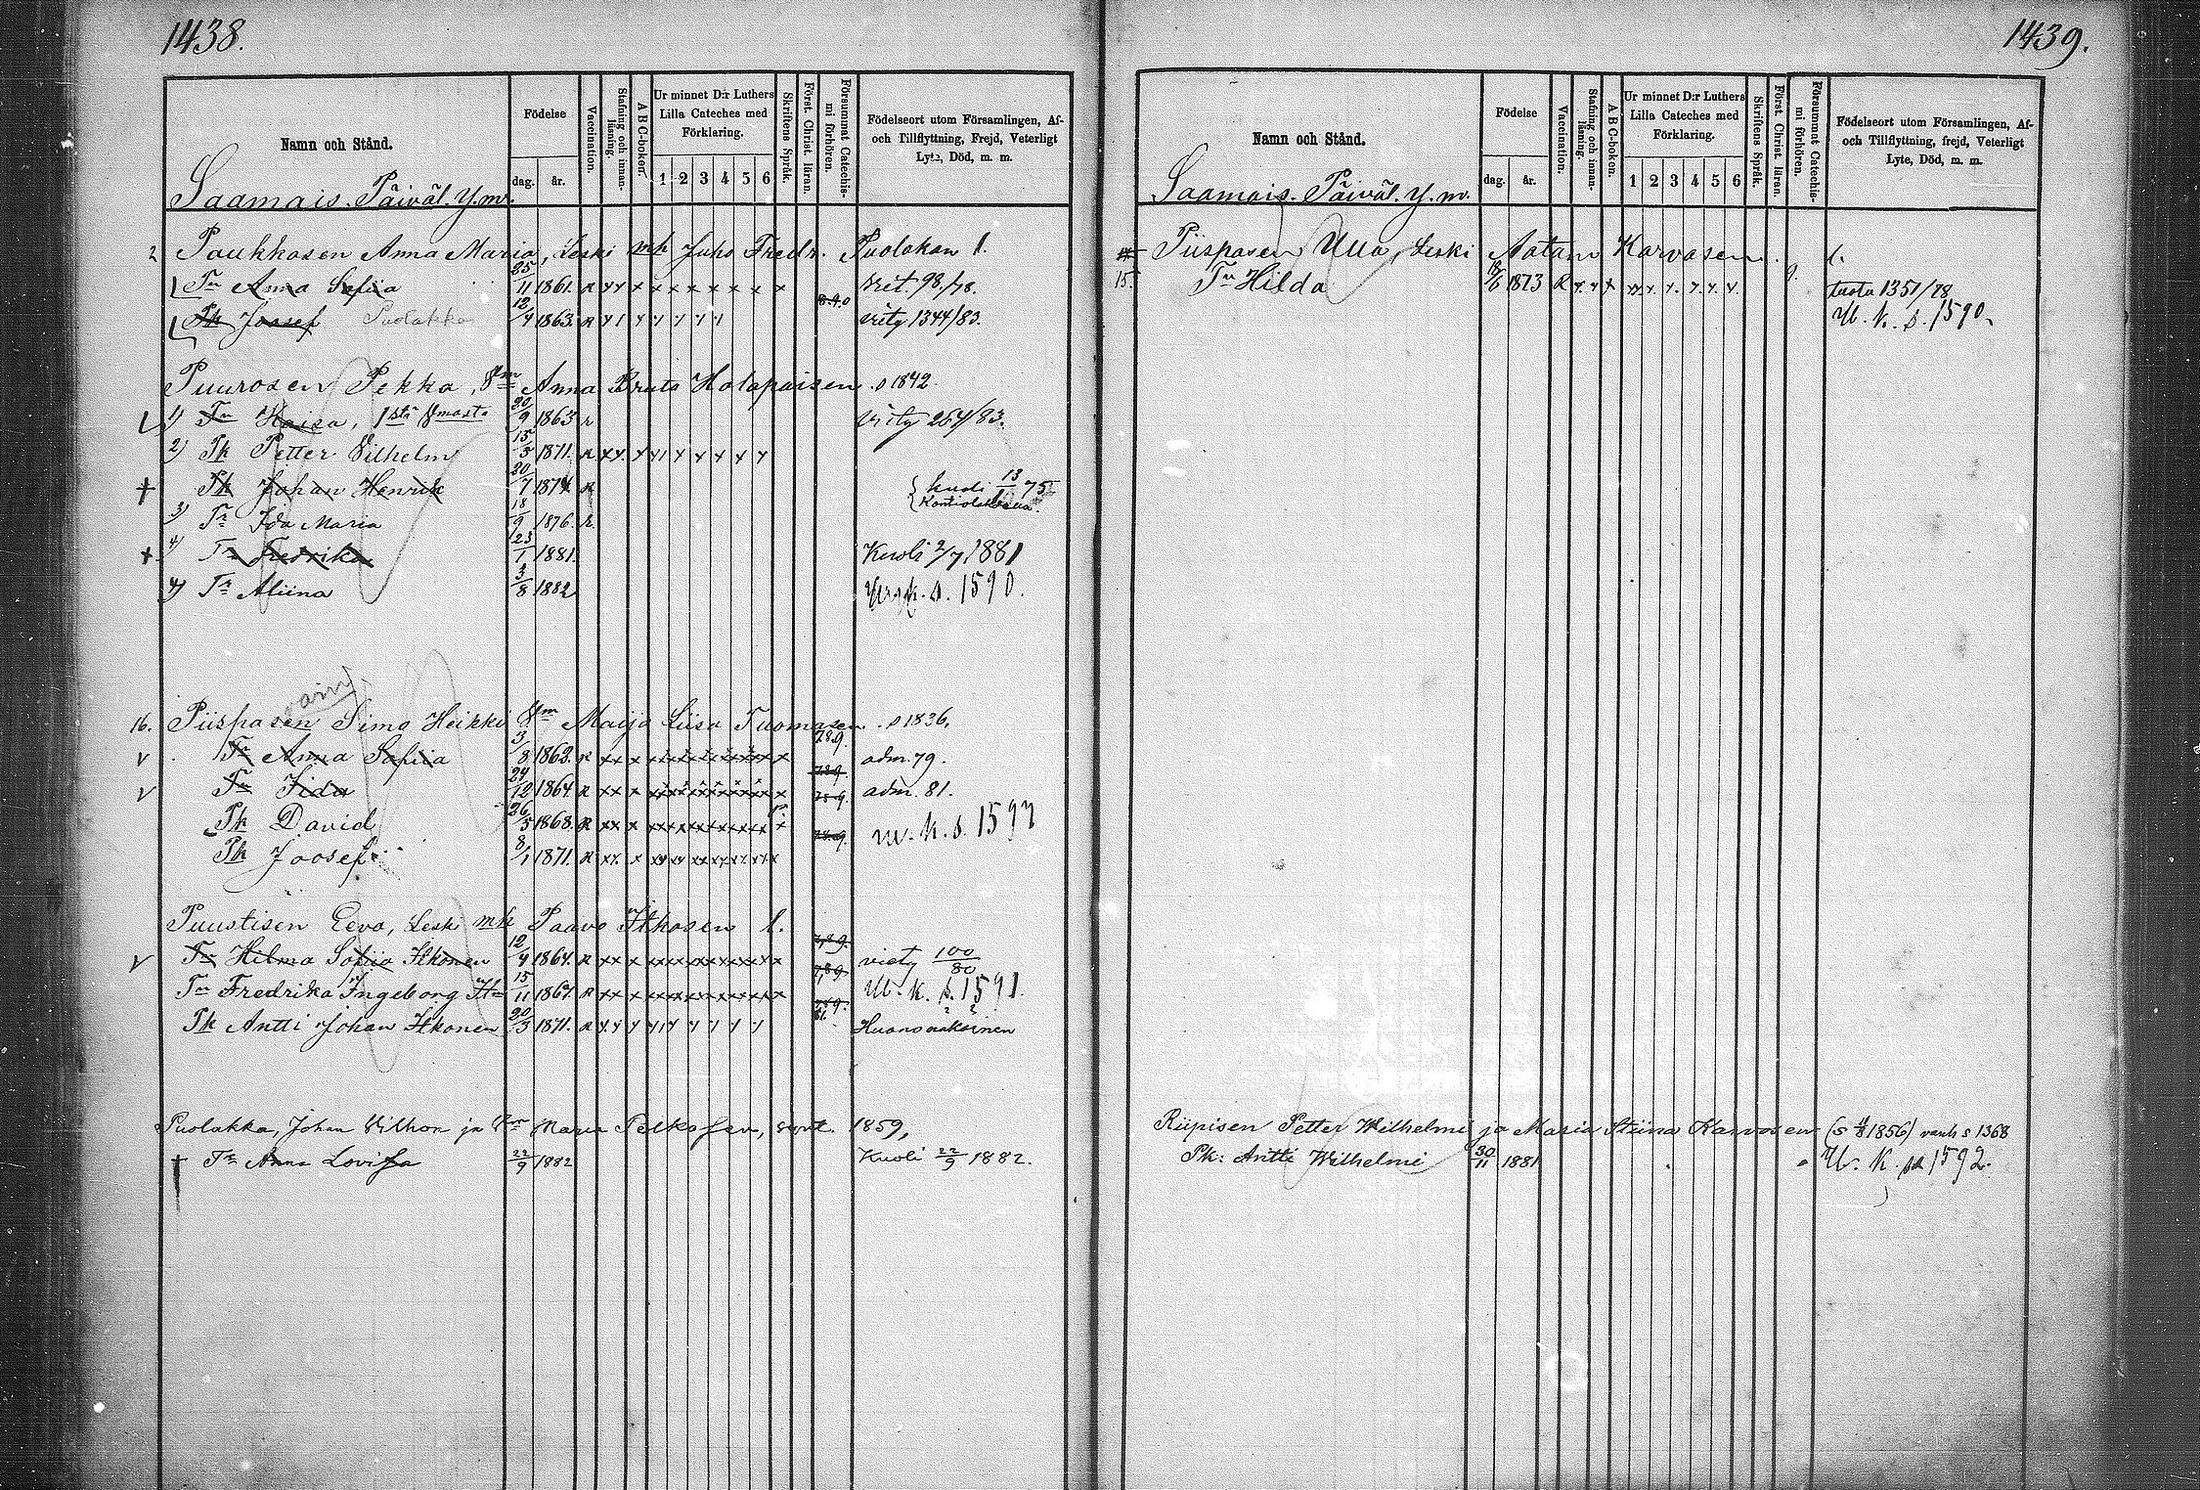 1438.
Namn och Stånd.
Födelse
dag. år.
Vaccination.
Stafning och innanläsning.
A B C-boken.
Ur minnet D:r Luthers Lilla Cateches med Förklaring.
1 2 3 4 5 6
Skriftens Språk.
Först. Christ. läran.
Försummat Catechismi förhören.
Födelseort utom Församlingen, Af- och Tillflyttning, Frejd, Veterligt Lyte, Död, m. m.
Saamais. Päiväl. y. m.
2 Paukkosen Anna Maria, Leski mh Juho Fredr. Puolakan l.
Tr Anna Sofiia 25/11 1861. R x x x x x x x x x x x
Pk Joosef Puolakka 12/4 1863. R vity 1344/83.
Puurosen Pekka, Vm Anna Brita Holapaisen s 1842
1) Tr Kaisa, 1stä Vmosta 20/9 1863 r vity 264/83.
2) Pk Petter Vilhelm 15/5 1871. R x x x x x x x x x
+ Pk Johan Henrik 20/7 1874 R kuoli 13/ 75
3) Tr Ida Maria 18/9 1876. r.
+ 4) Tr Fredrika 23/1 1881. Kuoli 2/7 1881
4) Tr Aliina 3/8 1882 s. 1590.
16. Piispasen Simo Heikki Vm Maija Liisa Tuomasen s 1836.
v Tr Anna Sofiia 3/8 1862. R xx x adm. 79.
v Tr Iida 24/12 1864 R xx x adm. 81.
Pk David 26/5 1868. R xx x uu. k. s. 1592
Pk Joosef 8/1 1871. R
Puustisen Eeva, Leski mh Paavo Itkosen l.
v Tr Hilma Sofiia Itkonen 12/4 1864. R xx x 100/80
Tr Fredrika Ingeborg It= 15/11 1867. R xx x U. k. s. 1591.
Pk Antti Johan Itkonen 20/3 1871. R Huonovaikoinen
Puolakka, Johan Vilhon ja Vm Maria Pelkosen, synt. 1859,
+ Tr Anna Lovisa 22/9 1882 Kuoli 22/9 1882.
1439.
Namn och Stånd.
Födelse
dag. år.
Vaccination.
Stafning och innanläsning.
A B C-boken.
Ur minnet D:r Luthers Lilla Cateches med Förklaring.
1 2 3 4 5 6
Skriftens Språk.
Först. Christ. läran.
Försummat Catechismi förhören.
Födelseort utom Församlingen, Af- och Tillflyttning, frejd, Veterligt Lyte, Död, m. m.
Saamais. Päiväl. y. m.
Piispasen Ulla, Leski Aatam Karvosen l.
15. Tr Hilda 18/6 1873 R 9. tuota 1351/78
U. k. s. 1590.
Riipisen Petter Wilhelmi ja Maria Stiina Karvosen (s 4/8 1856) vanh s 1368
Pk: Antti Wilhelmi 30/11 1881 U. k. s 1592.